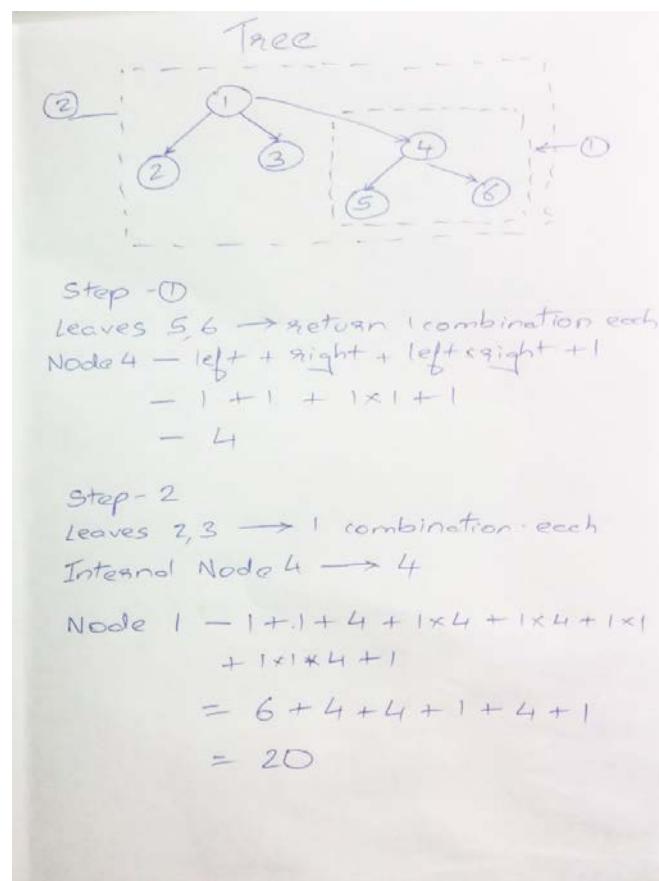 Tree
②
1
①
2
3
4
5
6
Step - ①
Leaves 5,6 → return 1 combination each
Node 4 — left + right + left x right + 1
— 1 + 1 + 1 x 1 + 1
— 4
Step - 2
Leaves 2,3 → 1 combination each
Internal Node 4 → 4
Node 1 — 1 + 1 + 4 + 1 x 4 + 1 x 4 + 1 x 1
+ 1 x 1 x 4 + 1
= 6 + 4 + 4 + 1 + 4 + 1
= 20